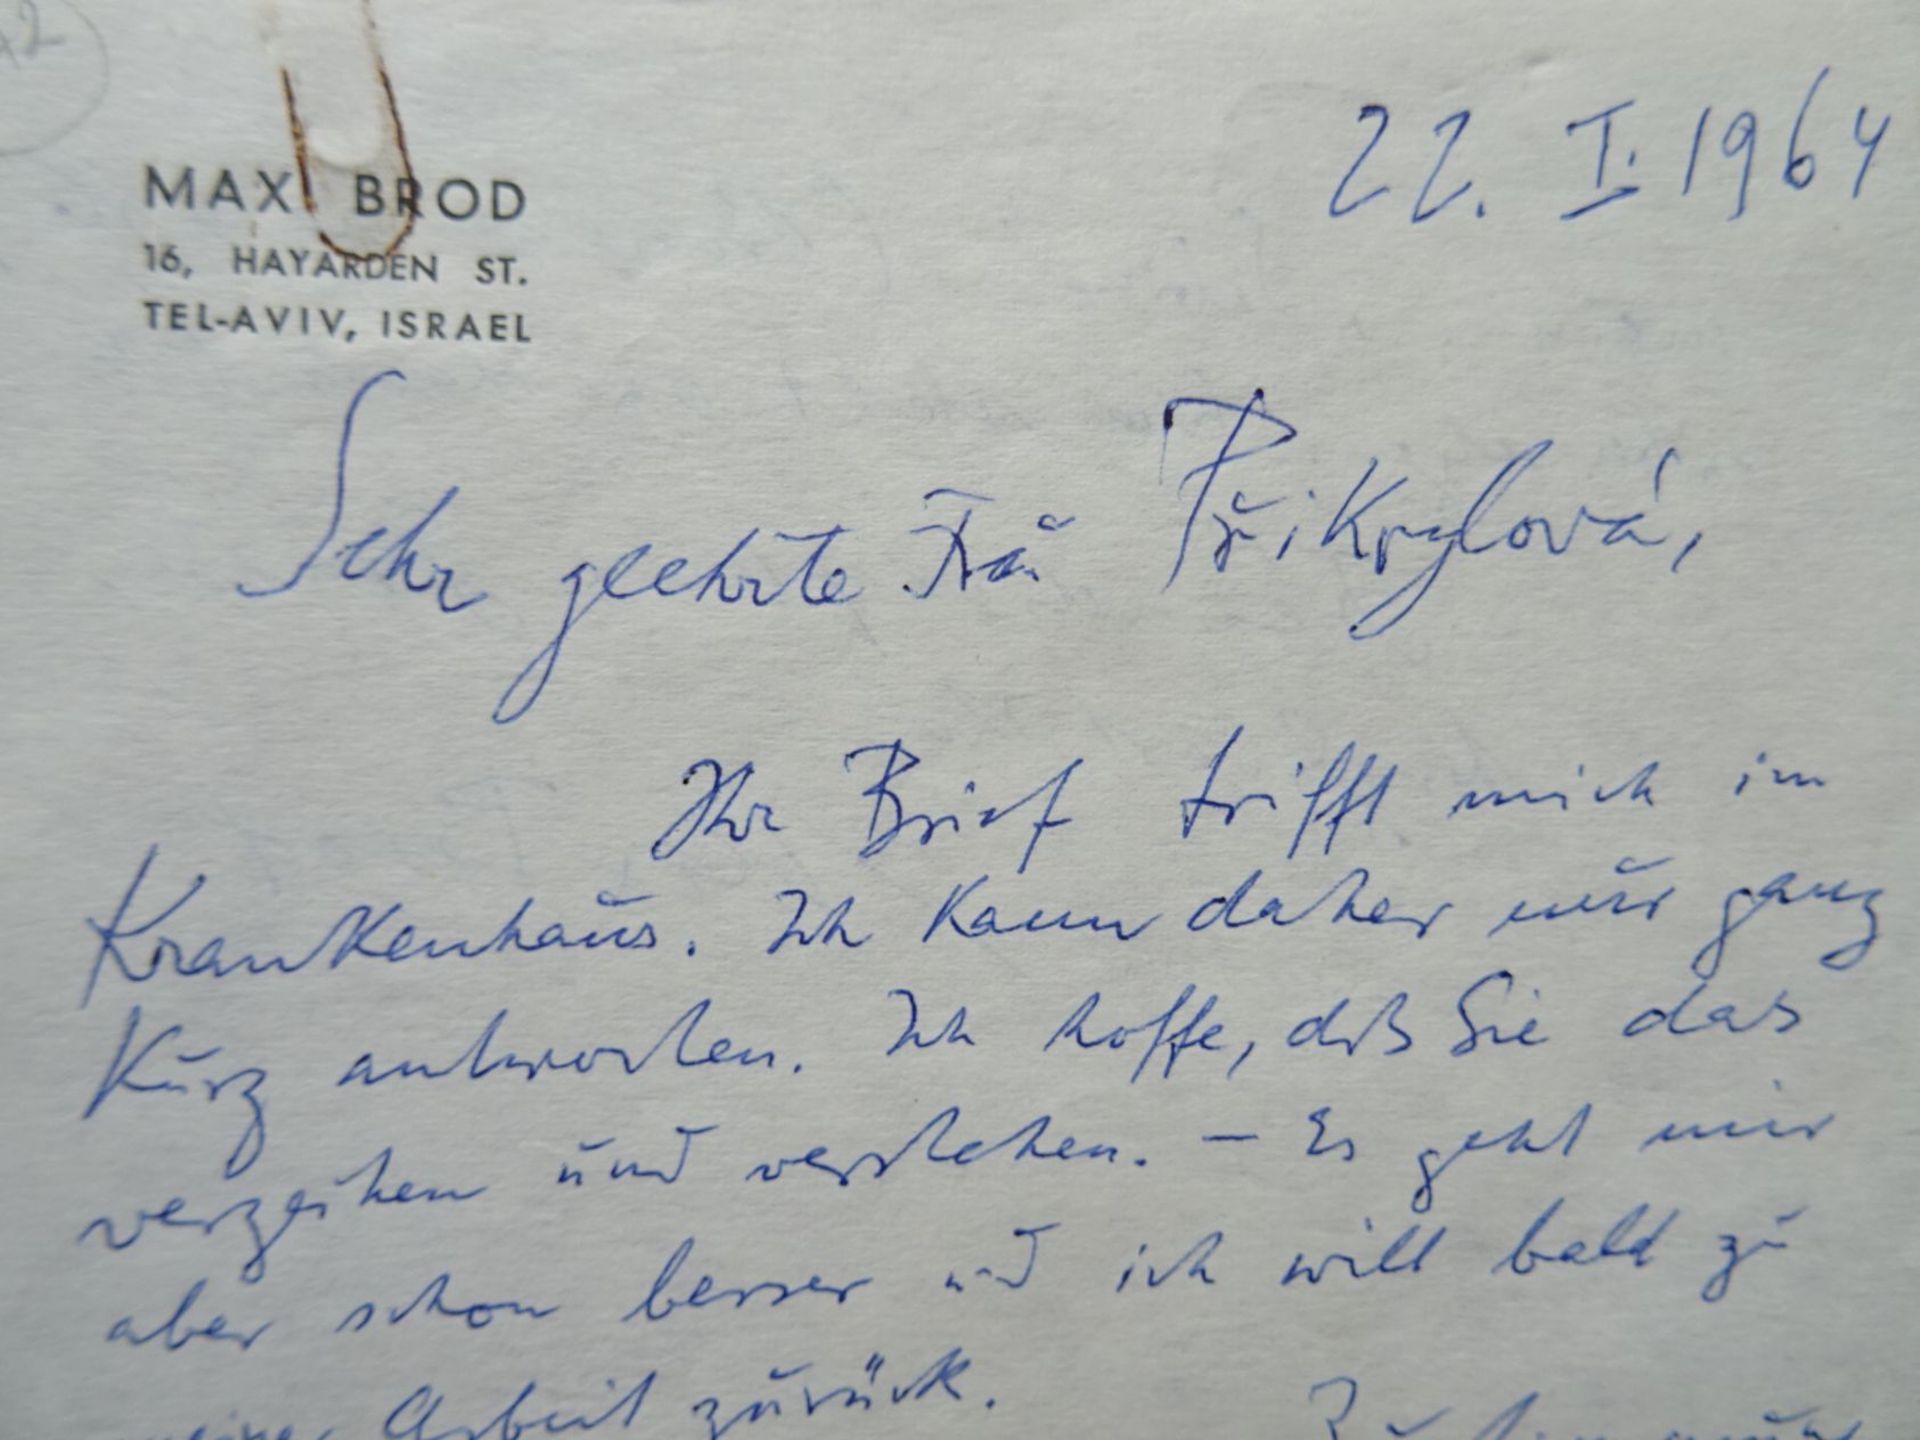 42
MAX BROD
16, HAYARDEN ST.
TEL-AVIV, ISRAEL
22. I. 1964
Sehr geehrte Frau Přikrylová,
Ihr Brief trifft mich im
Krankenhaus. Ich kann daher nur ganz
kurz antworten. Ich hoffe, dß Sie das
verzeihen und verstehen. – Es geht mir
aber schon besser und ich will bald zu
meiner Arbeit zurück.